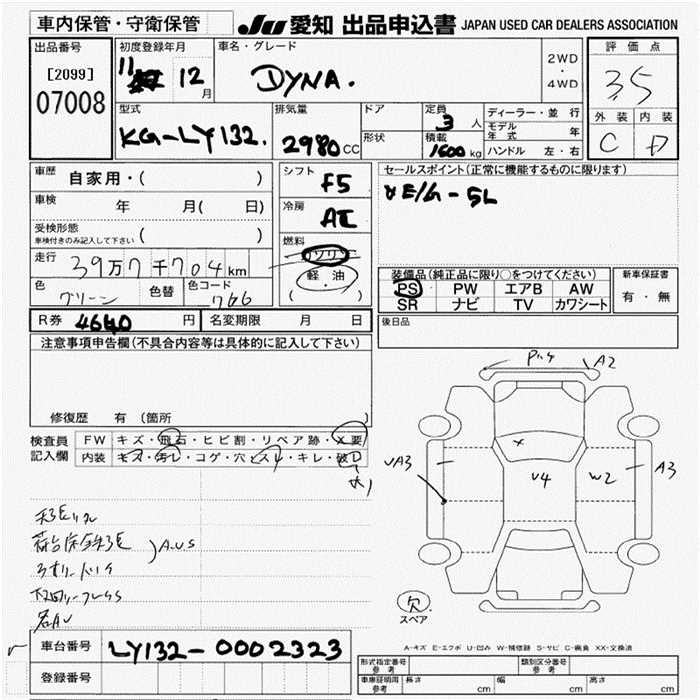 車内保管・守衛保管 JU 愛知 出品申込書 JAPAN USED CAR DEALERS ASSOCIATION
出品番号
[2099]
07008
初度登録年月
11 年 12 月
車名・グレード
DYNA.
2WD
・
4WD
評価点
3.5
外装 内装
C D
型式
KG-LY132.
排気量
2980 CC
ドア
形状
定員
3 人
積載
1600 kg
ディーラー・並行
モデル年式 年
ハンドル 左・右
車歴 自家用・( )
車検 年 月( 日)
受検形態
車検付きのみ記入して下さい ( )
走行 39万7千704km
色 グリーン 色替 色コード 766
シフト
F5
冷房
AC
燃料
ガソリン
軽油
( )
セールスポイント(正常に機能するものに限ります)
E/G-5L
装備品(純正品に限り○をつけてください)
PS PW エアB AW
SR ナビ TV カワシート
新車保証書
有・無
R券 4640 円 名変期限 月 日
後日品
注意事項申告欄(不具合内容等は具体的に記入して下さい)
修復歴 有(箇所 )
検査員記入欄
FW キズ・飛石・ヒビ割・リペア跡・X要
内装 キズ・汚レ・コゲ・穴・スレ・キレ・破レ
A.U.S
A2
A3
V4
W2
A3
欠
スペア
A-キズ E-エクボ U-凹み W-補修跡 S-サビ C-腐食 XX-交換済
車台番号 LY132-0002323
登録番号
形式指定番号 参考
類別区分番号 参考
車庫証明用 参考 長さ cm 幅 cm 高さ cm